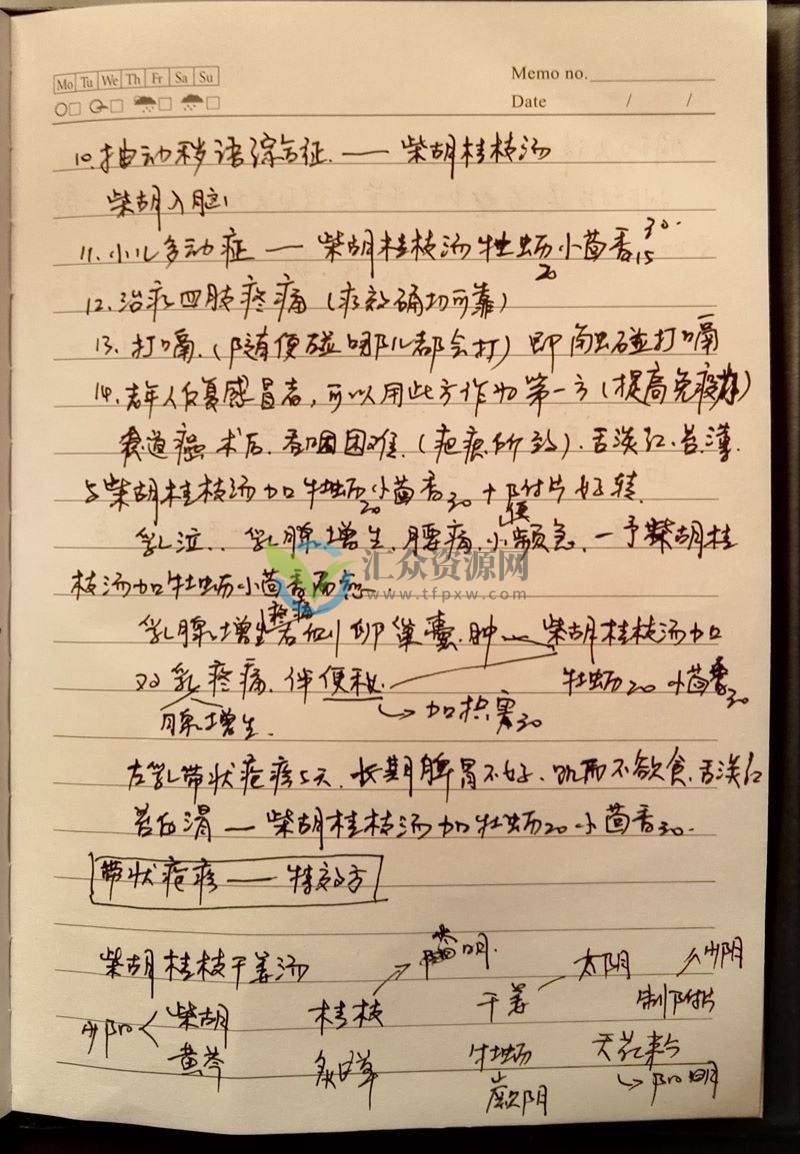 Mo Tu We Th Fr Sa Su
Memo no.
Date / /
10.抽动秽语综合征.——柴胡桂枝汤
柴胡入脑!
11.小儿多动症—柴胡桂枝汤牡蛎20小茴香15 30.
12.治疗四肢疼痛(疗效确切可靠)
13.打嗝.(随便碰哪儿都会打)即触碰打嗝
14.老年人反复感冒者,可以用此方作为第一方(提高免疫力)
食道癌术后.吞咽困难.(疤痕所致).舌淡红.苔薄.
与柴胡桂枝汤加牡蛎20小茴香30+附片好转.
乳泣..乳腺增生.腰痛.小便频急.—予柴胡桂
枝汤加牡蛎小茴香而愈—
乳腺增生疼痛右侧卵巢囊肿—柴胡桂枝汤加
双乳疼痛.伴便秘. 牡蛎20小茴香30
腺增生. 加枳实30
左乳带状疱疹5天.长期脾胃不好.饥而不欲食.舌淡红
苔白滑—柴胡桂枝汤加牡蛎20小茴香30.
带状疱疹——特效方
汇众资源网
www.tfpxw.com
柴胡桂枝干姜汤 太阴 少阴
少阳 柴胡 桂枝 干姜 制附片
黄芩 炙甘草 牡蛎 天花粉
厥阴 阳明